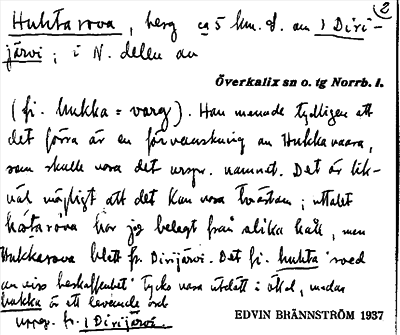 Huhtarova, berg ca 5 km. S. om 1 Diri-
järvi; i N. delen av
2
Överkalix sn o. tg Norrb. l.
(fi. hukka = varg). Han menade tydligen att
det förra är en förvanskning av Hukkavaara,
som skulle vara det urspr. namnet. Det är lik-
väl möjligt att det kan vara tvärtom; uttalet
har jag belagt från olika håll, men
Hukkarova blott fr. Dirijärvi. Det fi. huhta 'sved
av viss beskaffenhet' tycks vara utdött i Ökal, medan
hukka är ett levande ord
uppg. fr. 1 Dirijärvi.
EDVIN BRÄNNSTRÖM 1937